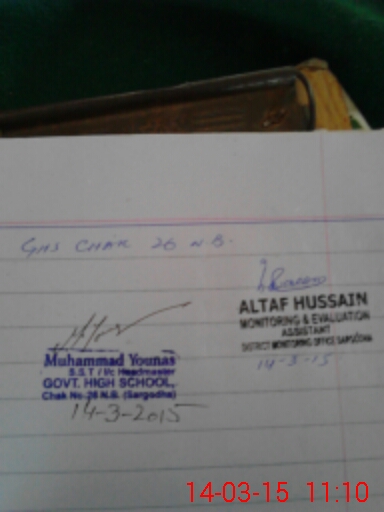 GHS CHAK 26 N.B.
Muhammad Younas
S.S.T / I/c Headmaster
GOVT. HIGH SCHOOL,
Chak No. 26 N.B. (Sargodha)
14-3-2015
ALTAF HUSSAIN
MONITORING & EVALUATION
ASSISTANT
DISTRICT MONITORING OFFICE SARGODHA
14-3-15
14-03-15 11:10